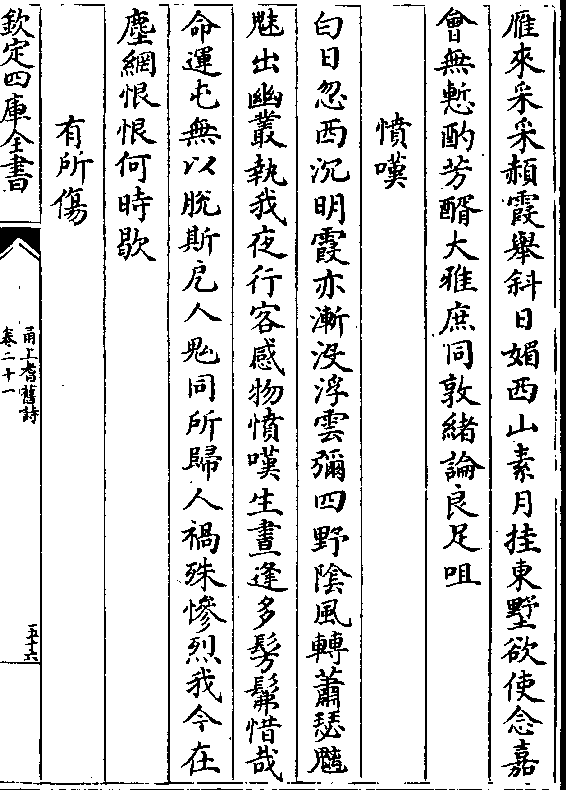 雁來采采赬霞舉斜日媚西山素月挂東墅欲使念嘉
會無慙酌芳醑大雅庶同敦緒論良足咀
憤嘆
白日忽西沉明霞亦漸没浮雲彌四野陰風轉蕭瑟魑
魅出幽叢執我夜行客感物憤嘆生晝逢多髣髴惜哉
命運屯無以脫斯戹人鬼同所歸人禍殊慘烈我今在
塵網恨恨何時歇
有所傷
欽定四庫全書
甬上耆舊詩
卷二十一
五十六